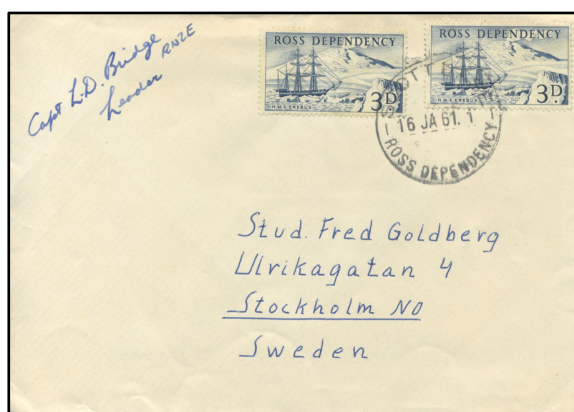 Capt L.D. Bridge RNZE
Leader
ROSS DEPENDENCY
H.M.S EREBUS
3D.
ROSS DEPENDENCY
H.M.S EREBUS
3D.
16 JA 61. 1
ROSS DEPENDENCY
Stud. Fred Goldberg
Ulrikagatan 4
Stockholm NO
Sweden